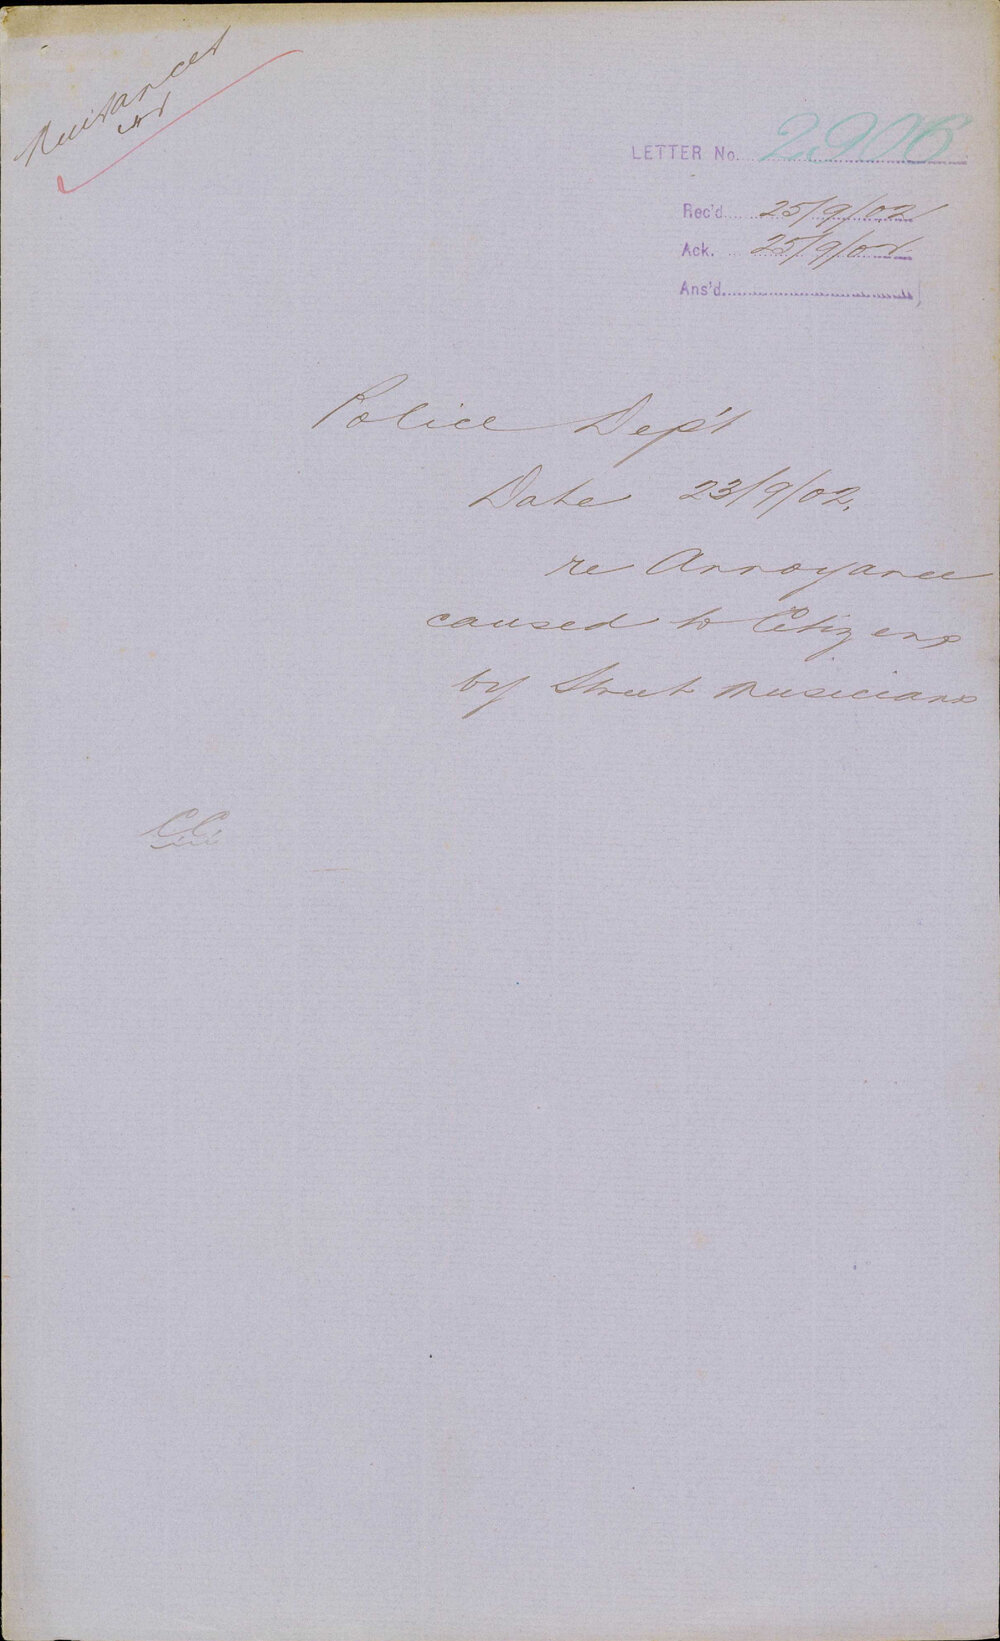 Nuisances
LETTER No. 2906
Rec'd 25/9/02
Ack. 25/9/02
Ans'd
Police Dep't
Date 23/9/02.
re Annoyance
caused to Citizens
by Street Musicians
C.C.